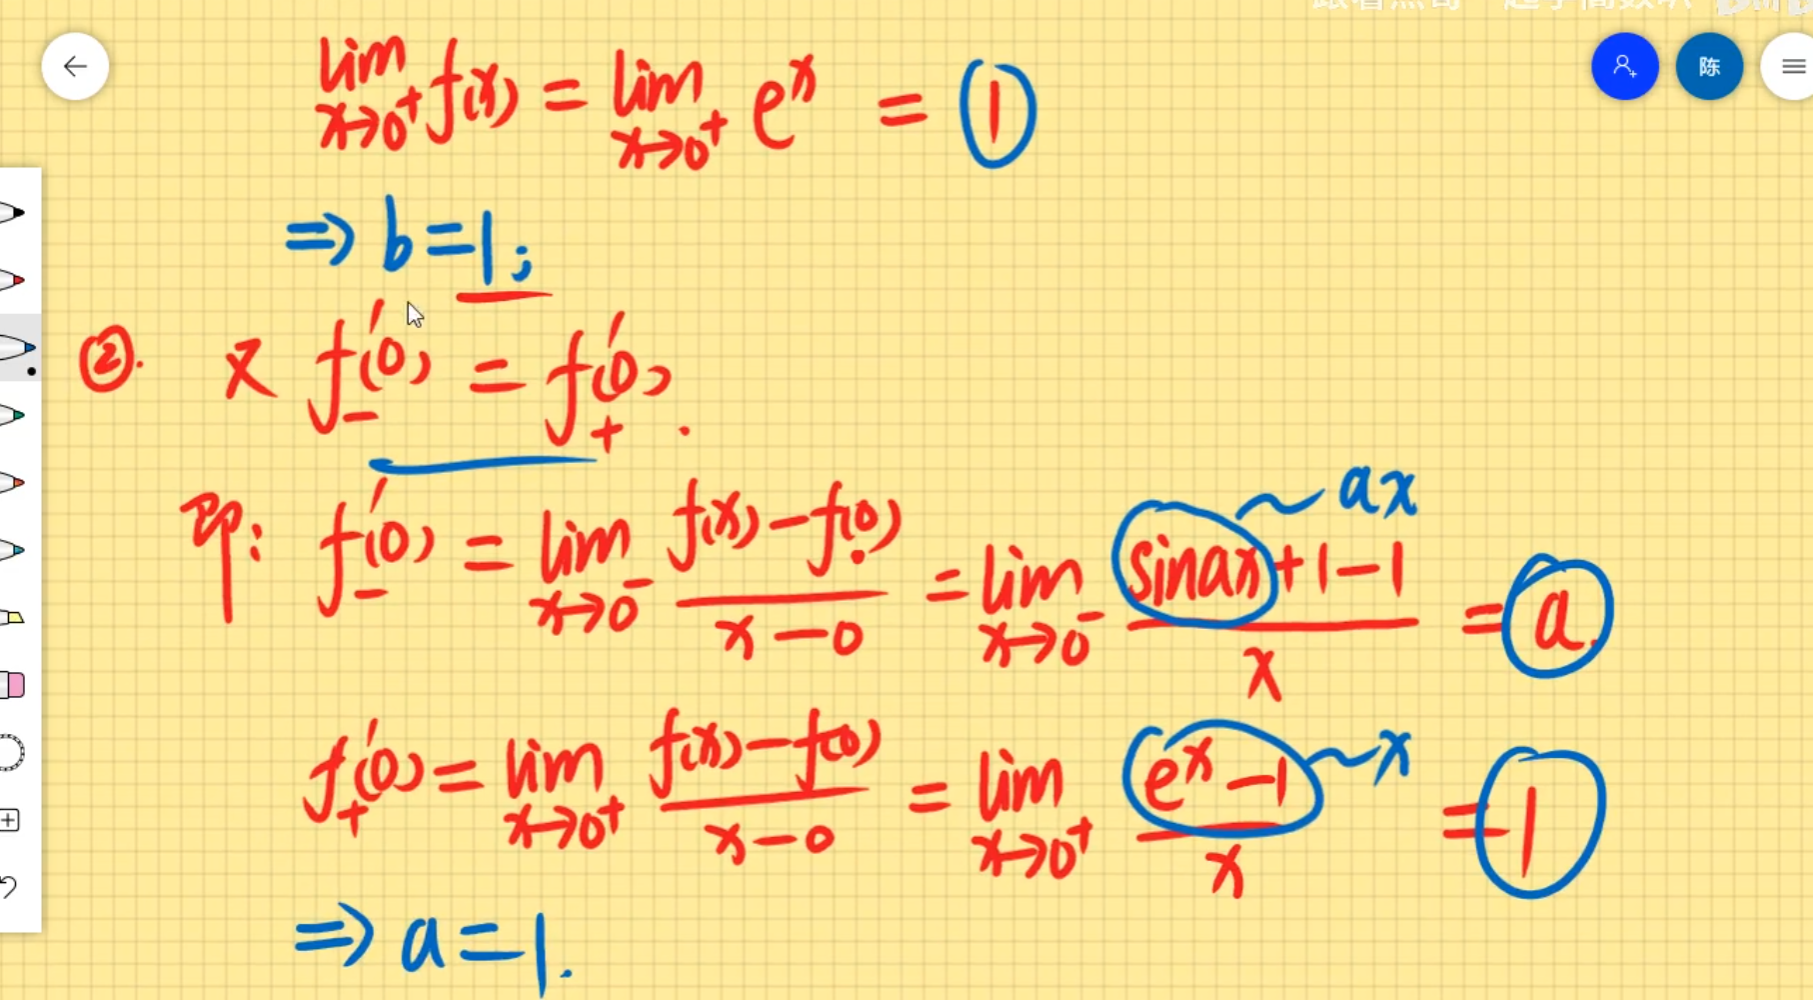 陈
lim x→0⁺ f(x) = lim x→0⁺ eˣ = 1
⇒ b=1;
②. 又 f'₋(0) = f'₊(0).
即: f'₋(0) = lim x→0⁻ (f(x)-f(0))/(x-0) = lim x→0⁻ (sinax+1-1)/x = a.
~ax
f'₊(0) = lim x→0⁺ (f(x)-f(0))/(x-0) = lim x→0⁺ (eˣ-1)/x = 1
~x
⇒ a=1.